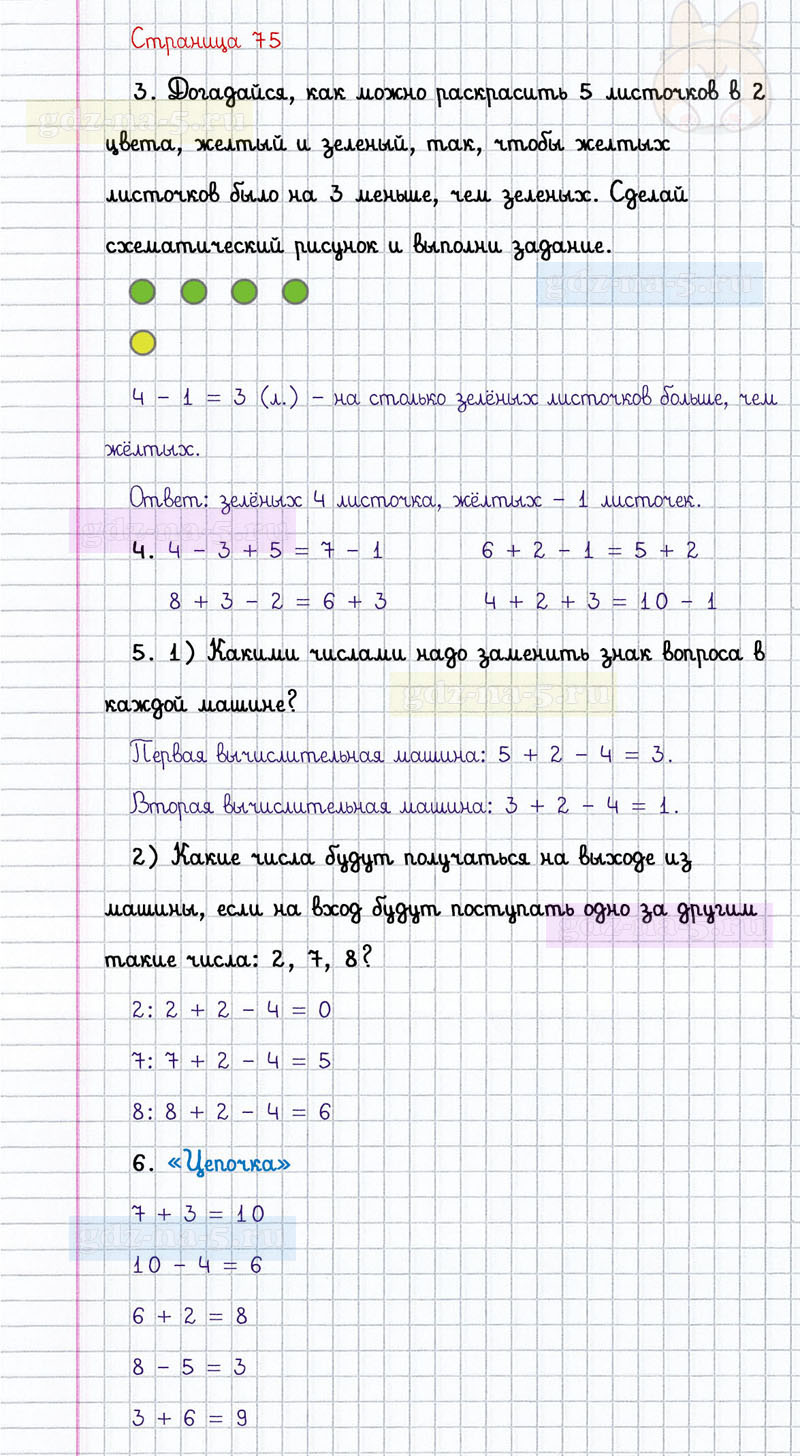 Страница 75
3. Догадайся, как можно раскрасить 5 листочков в 2
gdz-na-5.ru
цвета, желтый и зеленый, так, чтобы желтых
листочков было на 3 меньше, чем зеленых. Сделай
схематический рисунок и выполни задание.
gdz-na-5.ru
4 - 1 = 3 (л.) - на столько зелёных листочков больше, чем
жёлтых.
Ответ: зелёных 4 листочка, жёлтых - 1 листочек.
gdz-na-5.ru
4. 4 - 3 + 5 = 7 - 1 6 + 2 - 1 = 5 + 2
8 + 3 - 2 = 6 + 3 4 + 2 + 3 = 10 - 1
5. 1) Какими числами надо заменить знак вопроса в
gdz-na-5.ru
каждой машине?
Первая вычислительная машина: 5 + 2 - 4 = 3.
Вторая вычислительная машина: 3 + 2 - 4 = 1.
2) Какие числа будут получаться на выходе из
машины, если на вход будут поступать одно за другим
gdz-na-5.ru
такие числа: 2, 7, 8?
2: 2 + 2 - 4 = 0
7: 7 + 2 - 4 = 5
8: 8 + 2 - 4 = 6
6. «Цепочка»
7 + 3 = 10
gdz-na-5.ru
10 - 4 = 6
6 + 2 = 8
8 - 5 = 3
3 + 6 = 9